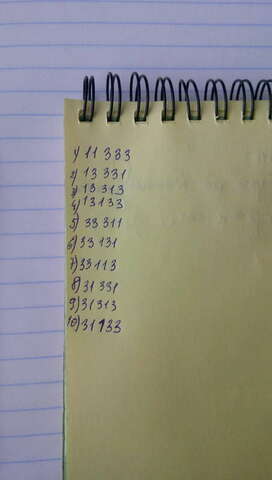 1) 11 333
2) 13 331
3) 13 313
4) 13133
5) 33 311
6) 33 131
7) 33 113
8) 31 331
9) 31 313
10) 31 133